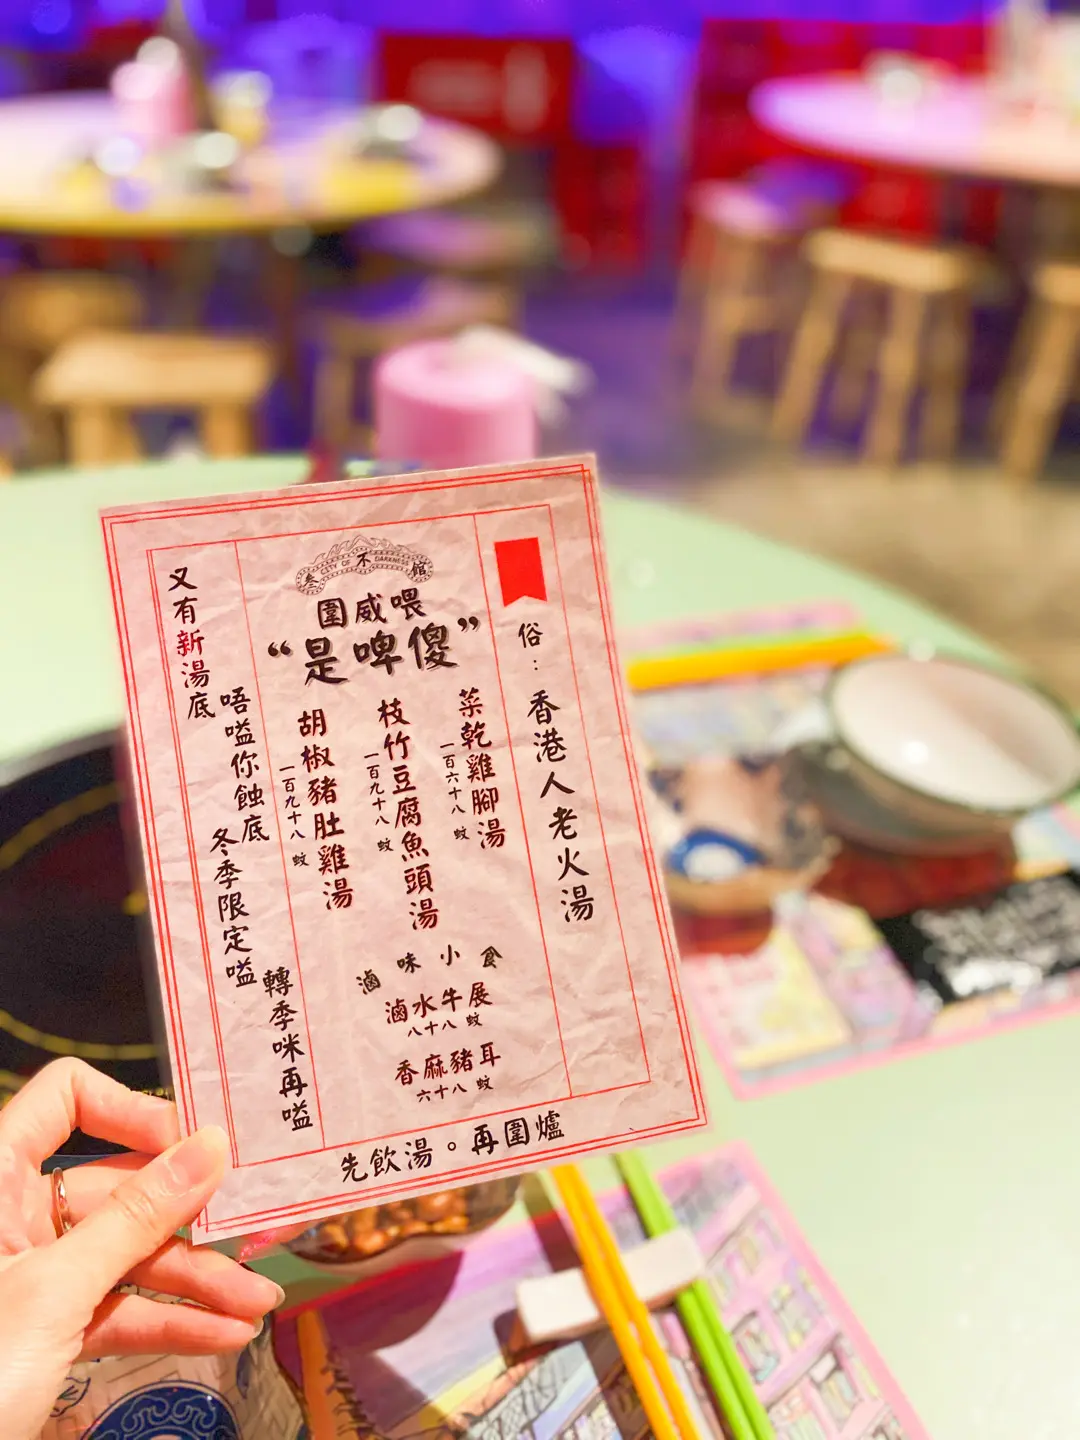 叁 CITY OF 不 DARKNESS 館
圍威喂
“是啤傻”
俗：香港人老火湯
菜乾雞腳湯
一百六十八 蚊
枝竹豆腐魚頭湯
一百九十八 蚊
胡椒豬肚雞湯
一百九十八 蚊
滷味小食
滷水牛展
八十八 蚊
香麻豬耳
六十八 蚊
又有新湯底
唔嗌你蝕底
冬季限定嗌
轉季咪再嗌
先飲湯。再圍爐